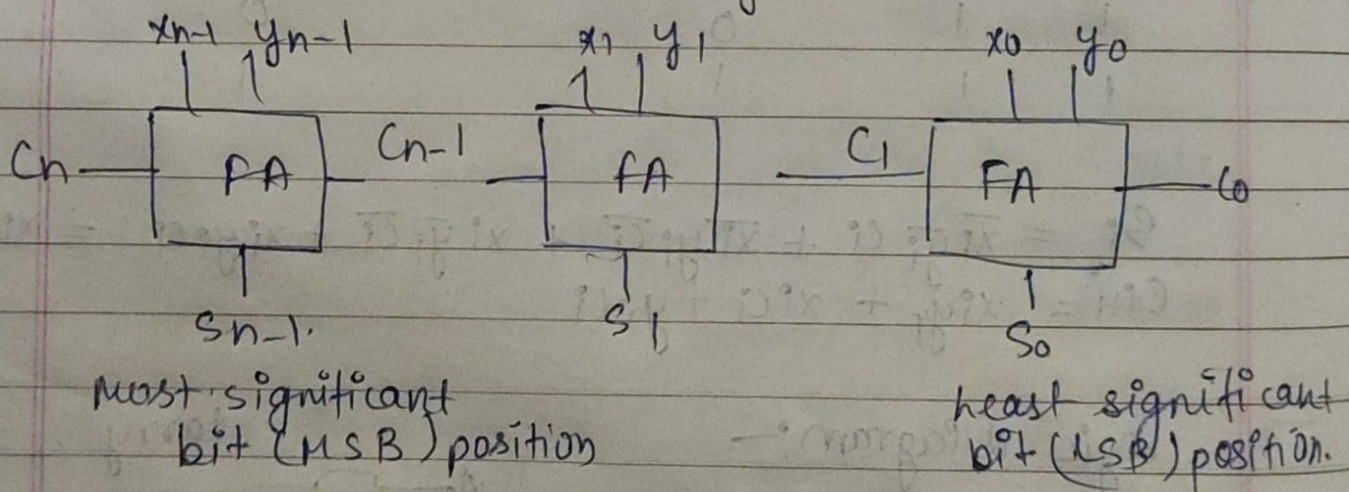 xn-1 yn-1 x1 y1 x0 y0
Cn FA Cn-1 FA C1 FA C0
Sn-1. S1 S0
Most significant
bit (MSB) position
heast significant
bit (LSB) position.